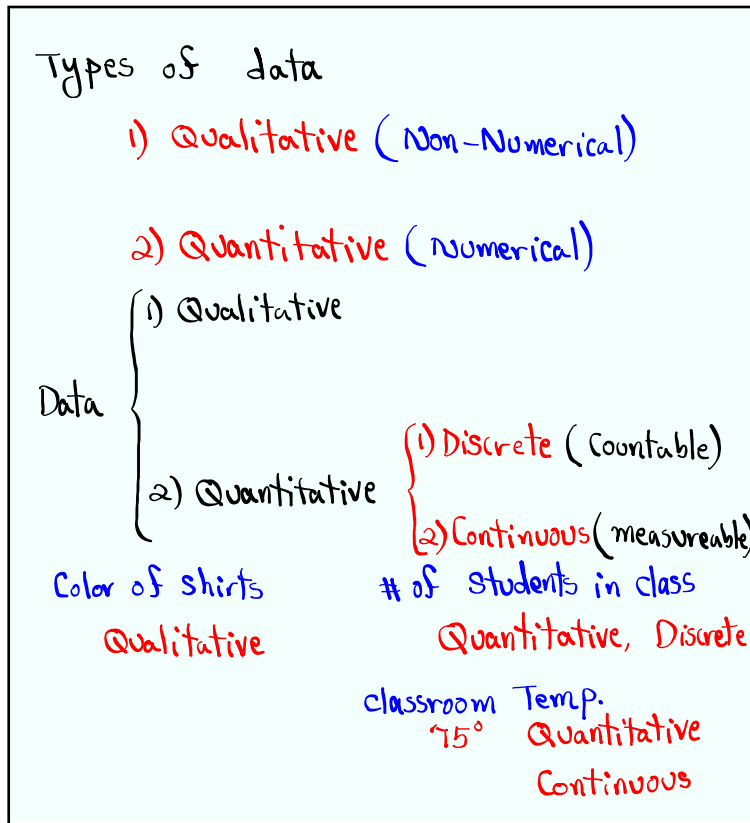 Types of data
1) Qualitative (Non-Numerical)
2) Quantitative (Numerical)
Data
1) Qualitative
2) Quantitative
1) Discrete (Countable)
2) Continuous (measureable)
Color of shirts
Qualitative
# of Students in class
Quantitative, Discrete
classroom Temp.
75° Quantitative
Continuous